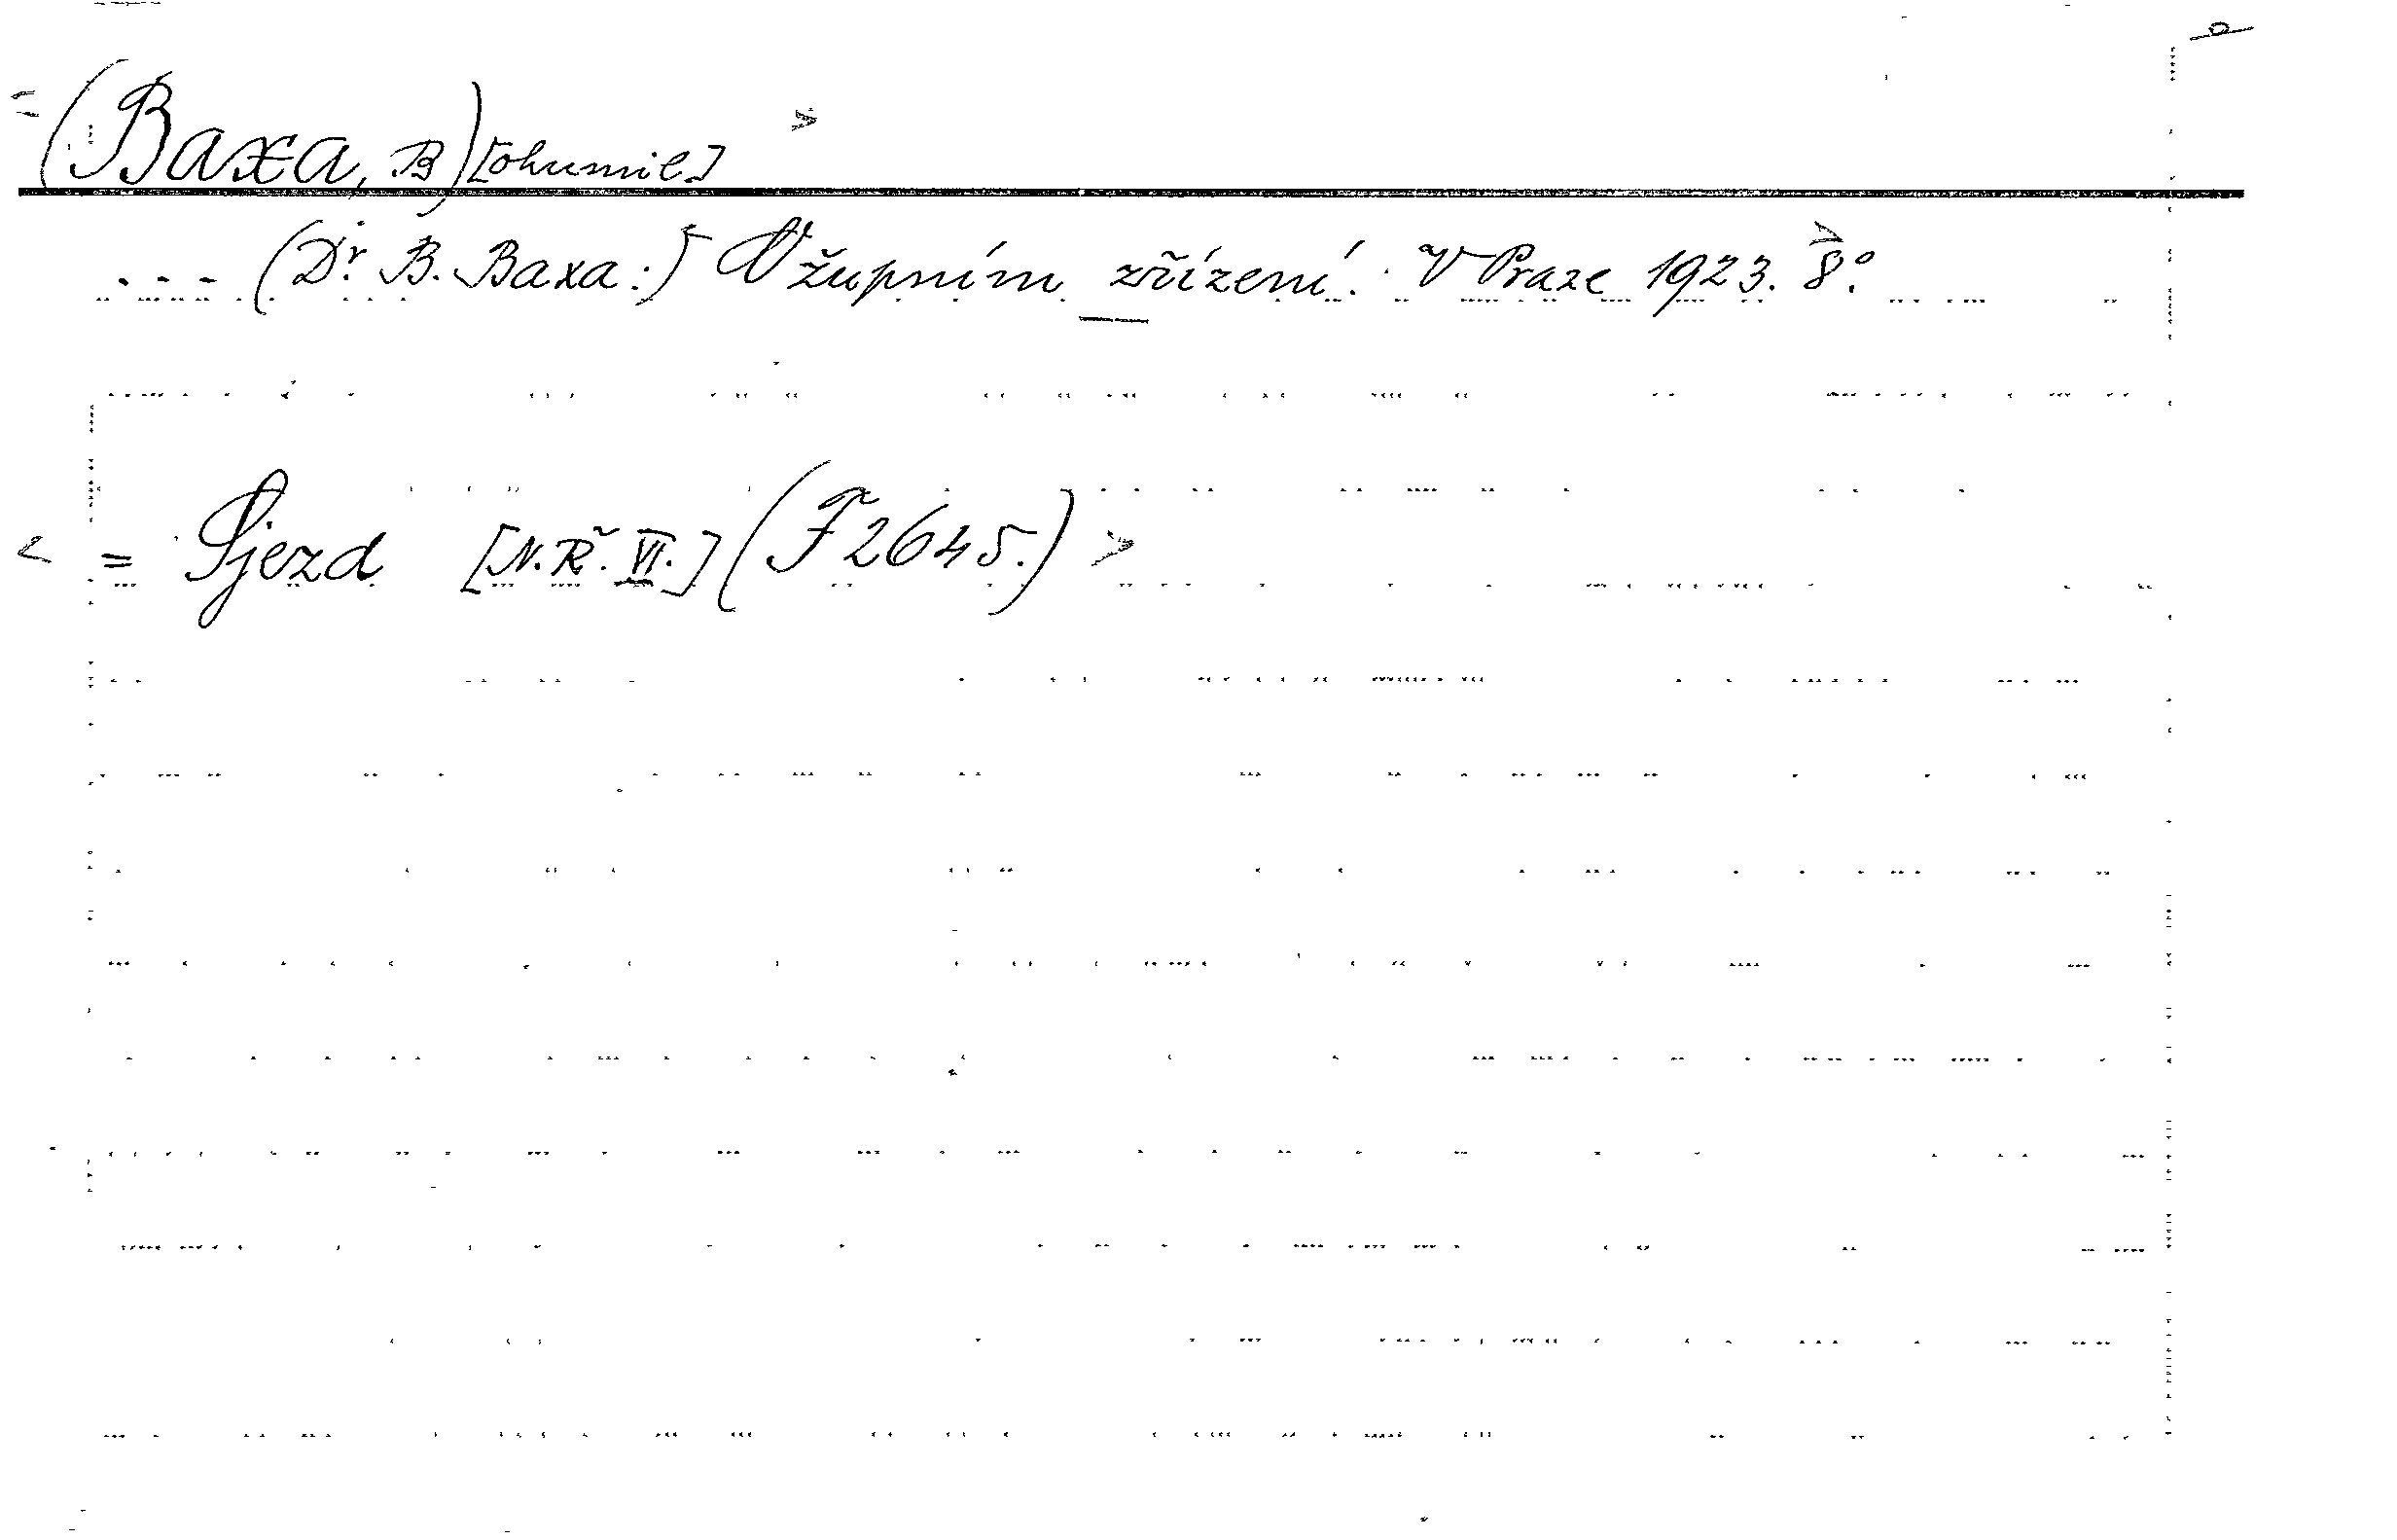 (Baxa, B)[ohumil] >
--- (Dr. B. Baxa:) O župním zřízení. V Praze 1923. 8°.
< = Sjezd [N.Ř. VI.] (F 2645.) >